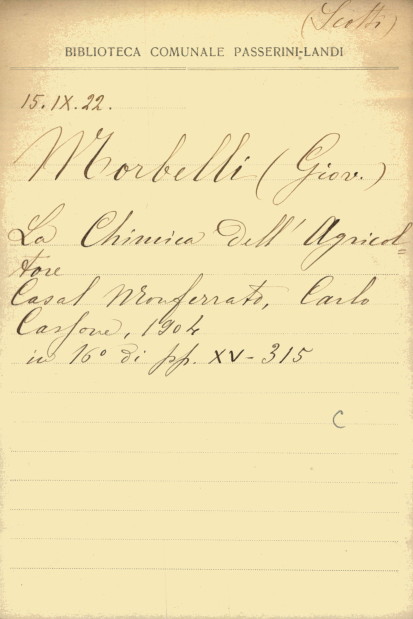 (Scotti)
BIBLIOTECA COMUNALE PASSERINI-LANDI
15.IX.22.
Morbelli (Giov.)
La Chimica dell'Agricol=
tore
Casal Monferrato, Carlo
Cassone, 1904
in 16º di pp. XV-315
C